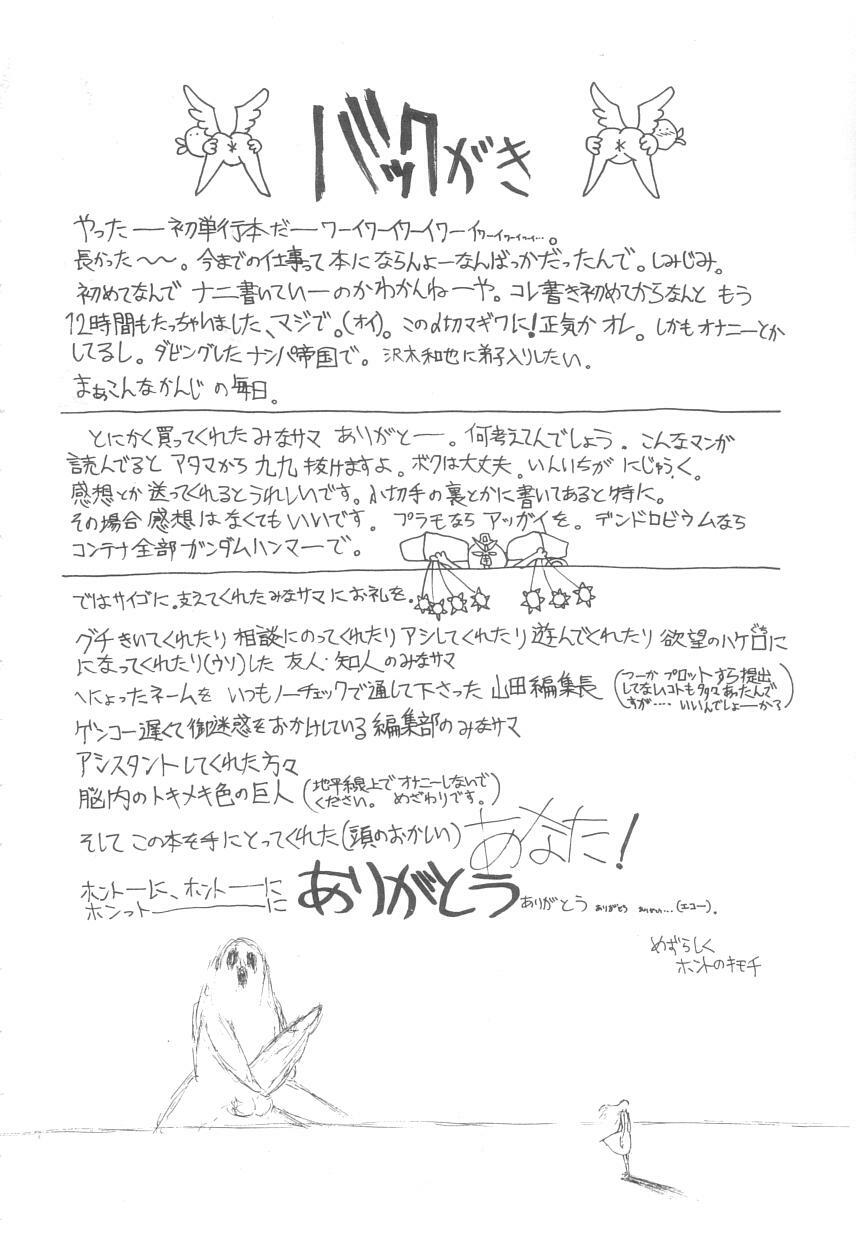 バックがき
やったー初単行本だーワーイワーイワーイワーイワーイワーイワーイ…。
長かった〜〜。今までの仕事って本にならんよーなんばっかだったんで。しみじみ。
初めてなんで ナニ書いていーのかわかんねーや。コレ書き初めてからなんと もう
12時間もたっちゃいました、マジで。(オイ)。この〆切マギワに!正気か オレ。しかもオナニーとか
してるし。ダビングしたナンパ帝国で。沢木和也に弟子入りしたい。
まぁこんなかんじの毎日。
とにかく買ってくれたみなサマ ありがとー。何考えてんでしょう。こんなマンガ
読んでると アタマから 九九 抜けますよ。ボクは大丈夫。いんいちが にじゅうく。
感想とか送ってくれるとうれしいです。小切手の裏とかに書いてあると特に。
その場合感想はなくてもいいです。プラモなら アッガイを。デンドロビウムなら
コンテナ全部ガンダムハンマーで。
ではサイゴに。支えてくれたみなサマにお礼を。
グチきいてくれたり 相談にのってくれたり アシしてくれたり 遊んでくれたり 欲望のハケ口(ぐち)に
になってくれたり(ウソ)した 友人・知人のみなサマ
へにょったネームを いつもノーチェックで通して下さった 山田編集長 (つーか プロットすら提出
してないコトも多々あったんで
すが…. いいんでしょーか?)
ゲンコー遅くて御迷惑をおかけしている編集部のみなサマ
アシスタントしてくれた方々
脳内のトキメキ色の巨人 (地平線上でオナニーしないで
ください。 めざわりです。)
そして この本を手にとってくれた(頭のおかしい) あなた!
ホントーに、ホントーに
ホンっトーーーに ありがとう ありがとう ありがとう ありがとう…(エコー)。
めずらしく
ホントのキモチ